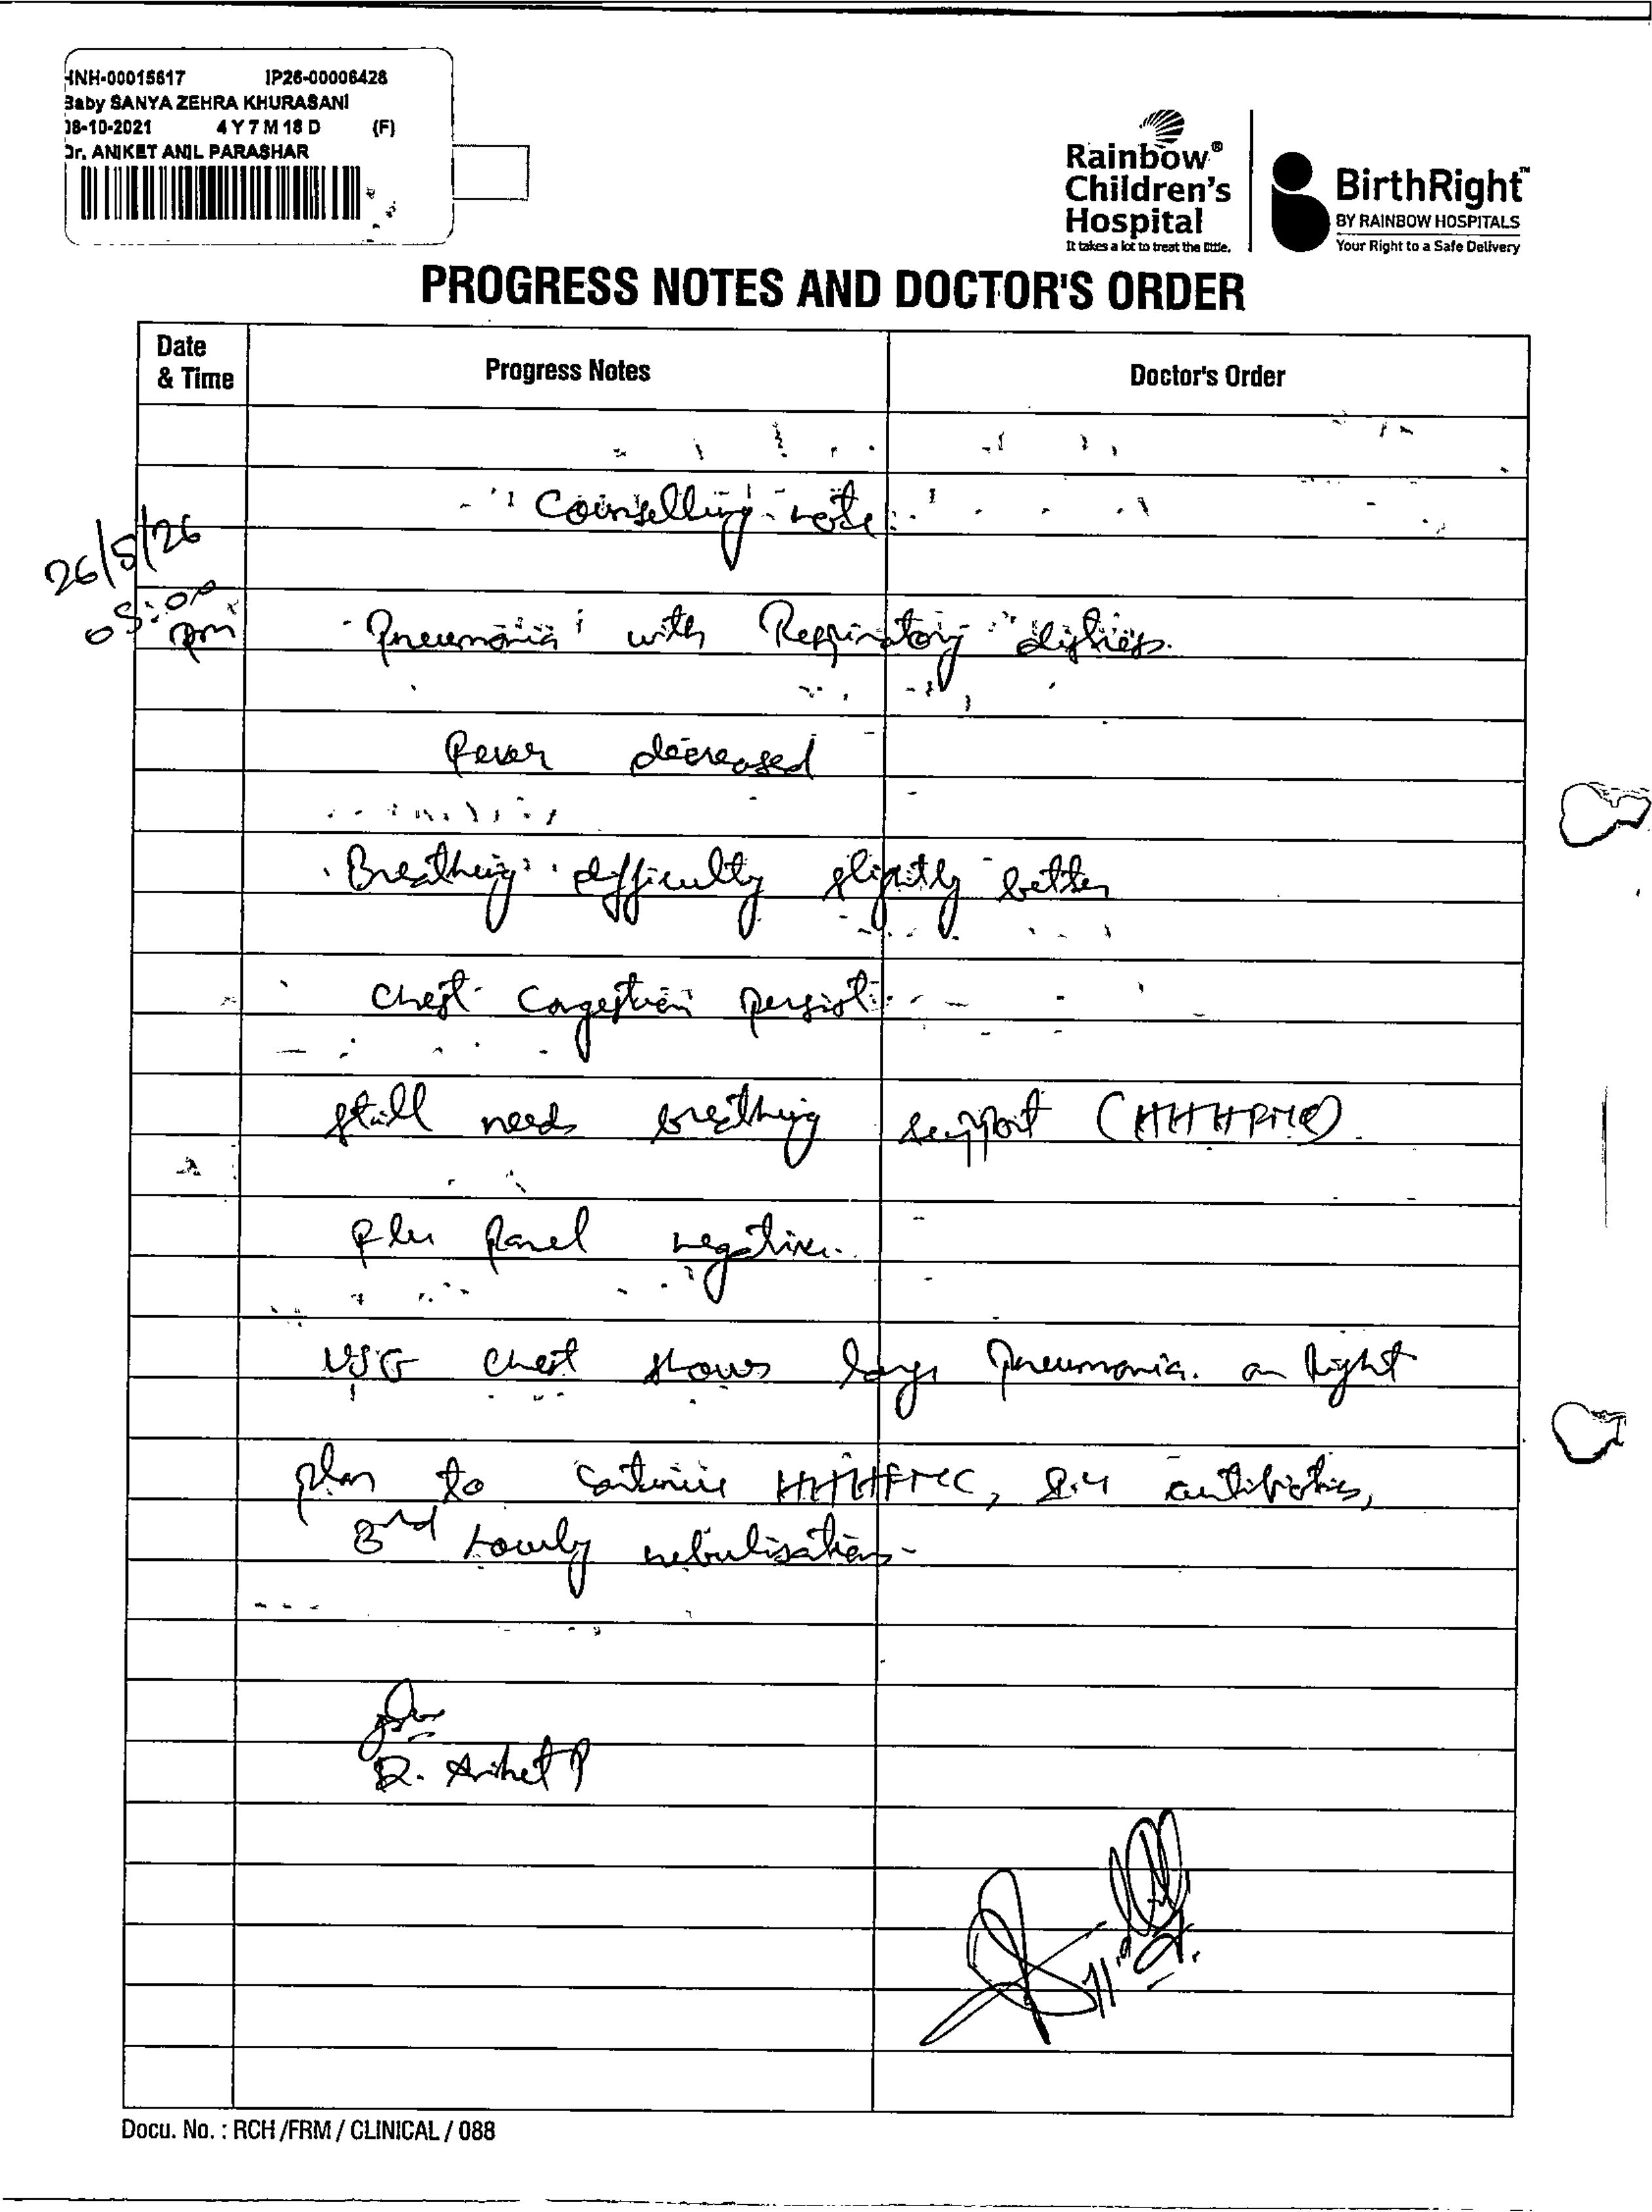 HNH-00015617 IP26-00006428
Baby SANYA ZEHRA KHURASANI
08-10-2021 4 Y 7 M 18 D (F)
Dr. ANIKET ANIL PARASHAR
Rainbow®
Children's
Hospital
It takes a lot to treat the little.
BirthRight™
BY RAINBOW HOSPITALS
Your Right to a Safe Delivery
PROGRESS NOTES AND DOCTOR'S ORDER
Date
& Time
Progress Notes
Doctor's Order
Counselling note
26/5/26
05:00
pm
Pneumonia with Respiratory distress.
fever decreased
Breathing difficulty slightly better
chest congestion persist
still needs breathing support (HHHFNC)
flu panel negative.
USG chest shows large pneumonia. on right
plan to continue HHHFNC, I.V antibiotics,
3rd hourly nebulisation.
Dr. Aniket P
Docu. No. : RCH /FRM / CLINICAL / 088